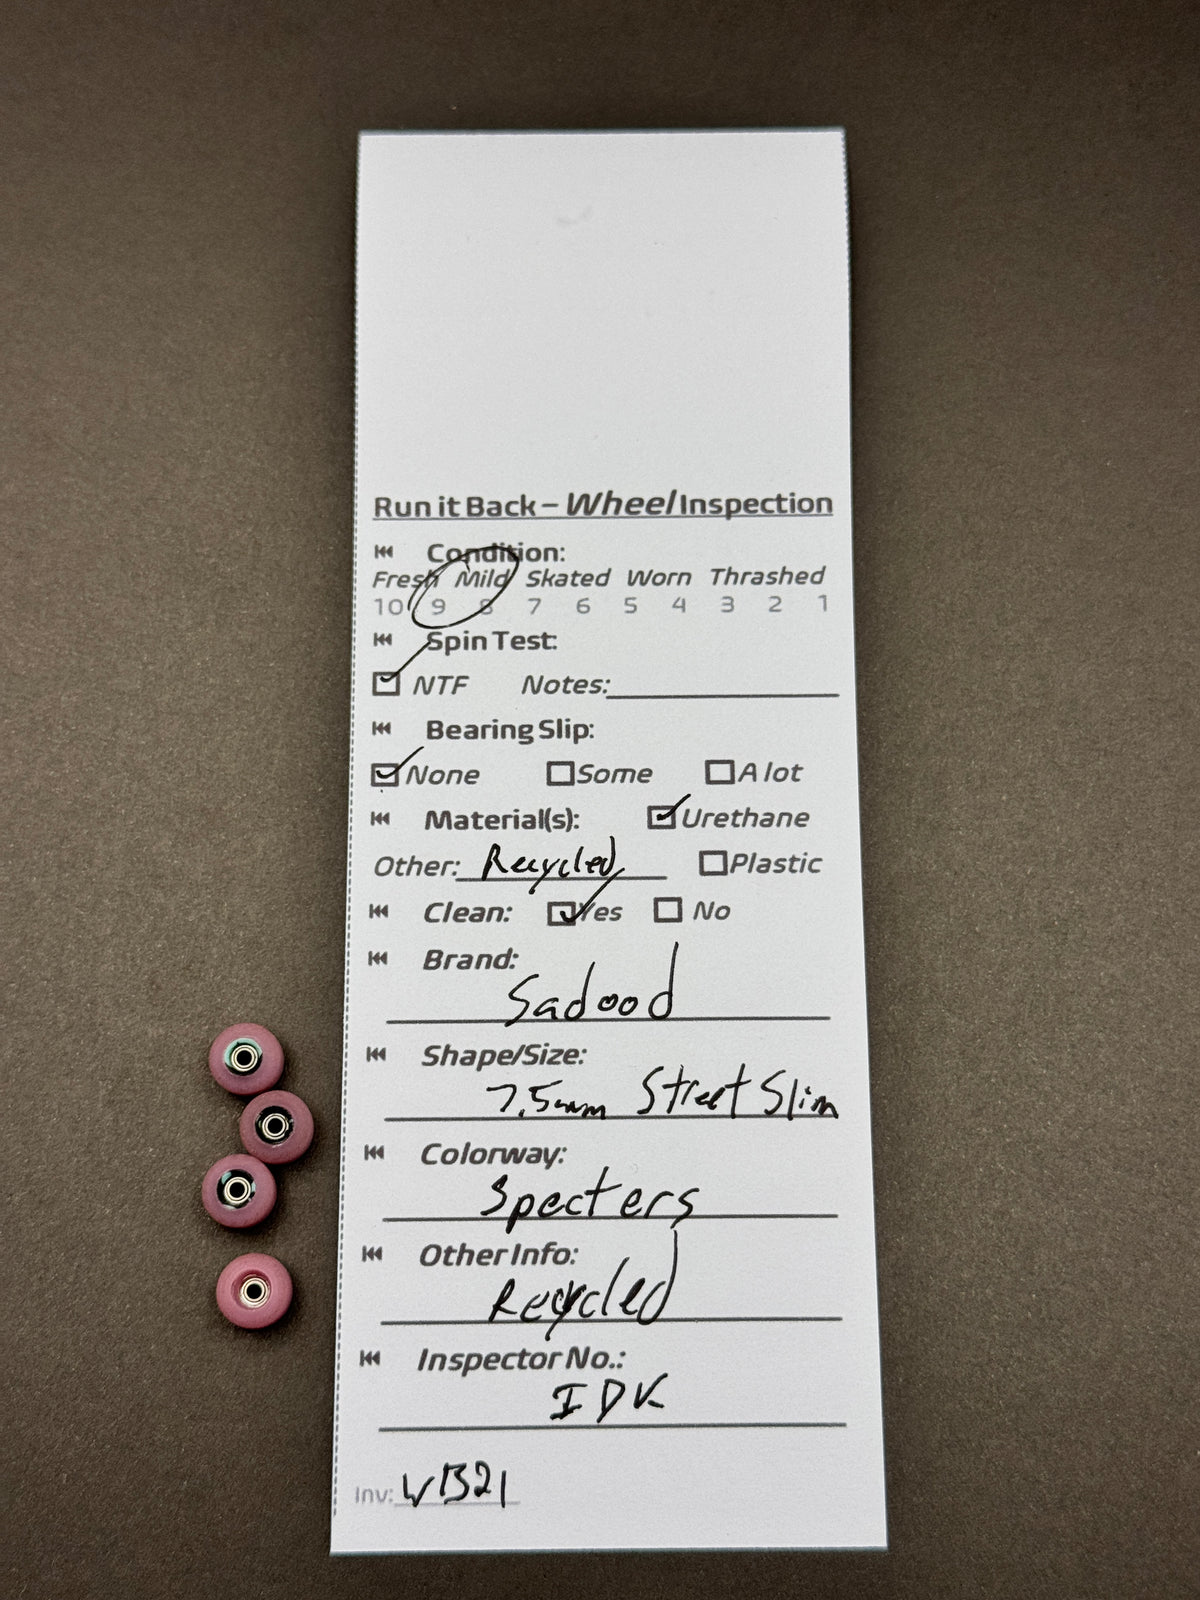 Run it Back – Wheel Inspection
Condition:
Fresh Mild Skated Worn Thrashed
10 9 8 7 6 5 4 3 2 1
Spin Test:
NTF Notes:
Bearing Slip:
None Some A lot
Material(s): Urethane
Other: Recycled Plastic
Clean: Yes No
Brand:
Sadood
Shape/Size:
7.5mm Street Slim
Colorway:
Specters
Other Info:
Recycled
Inspector No.:
IDK
Inv: WB21